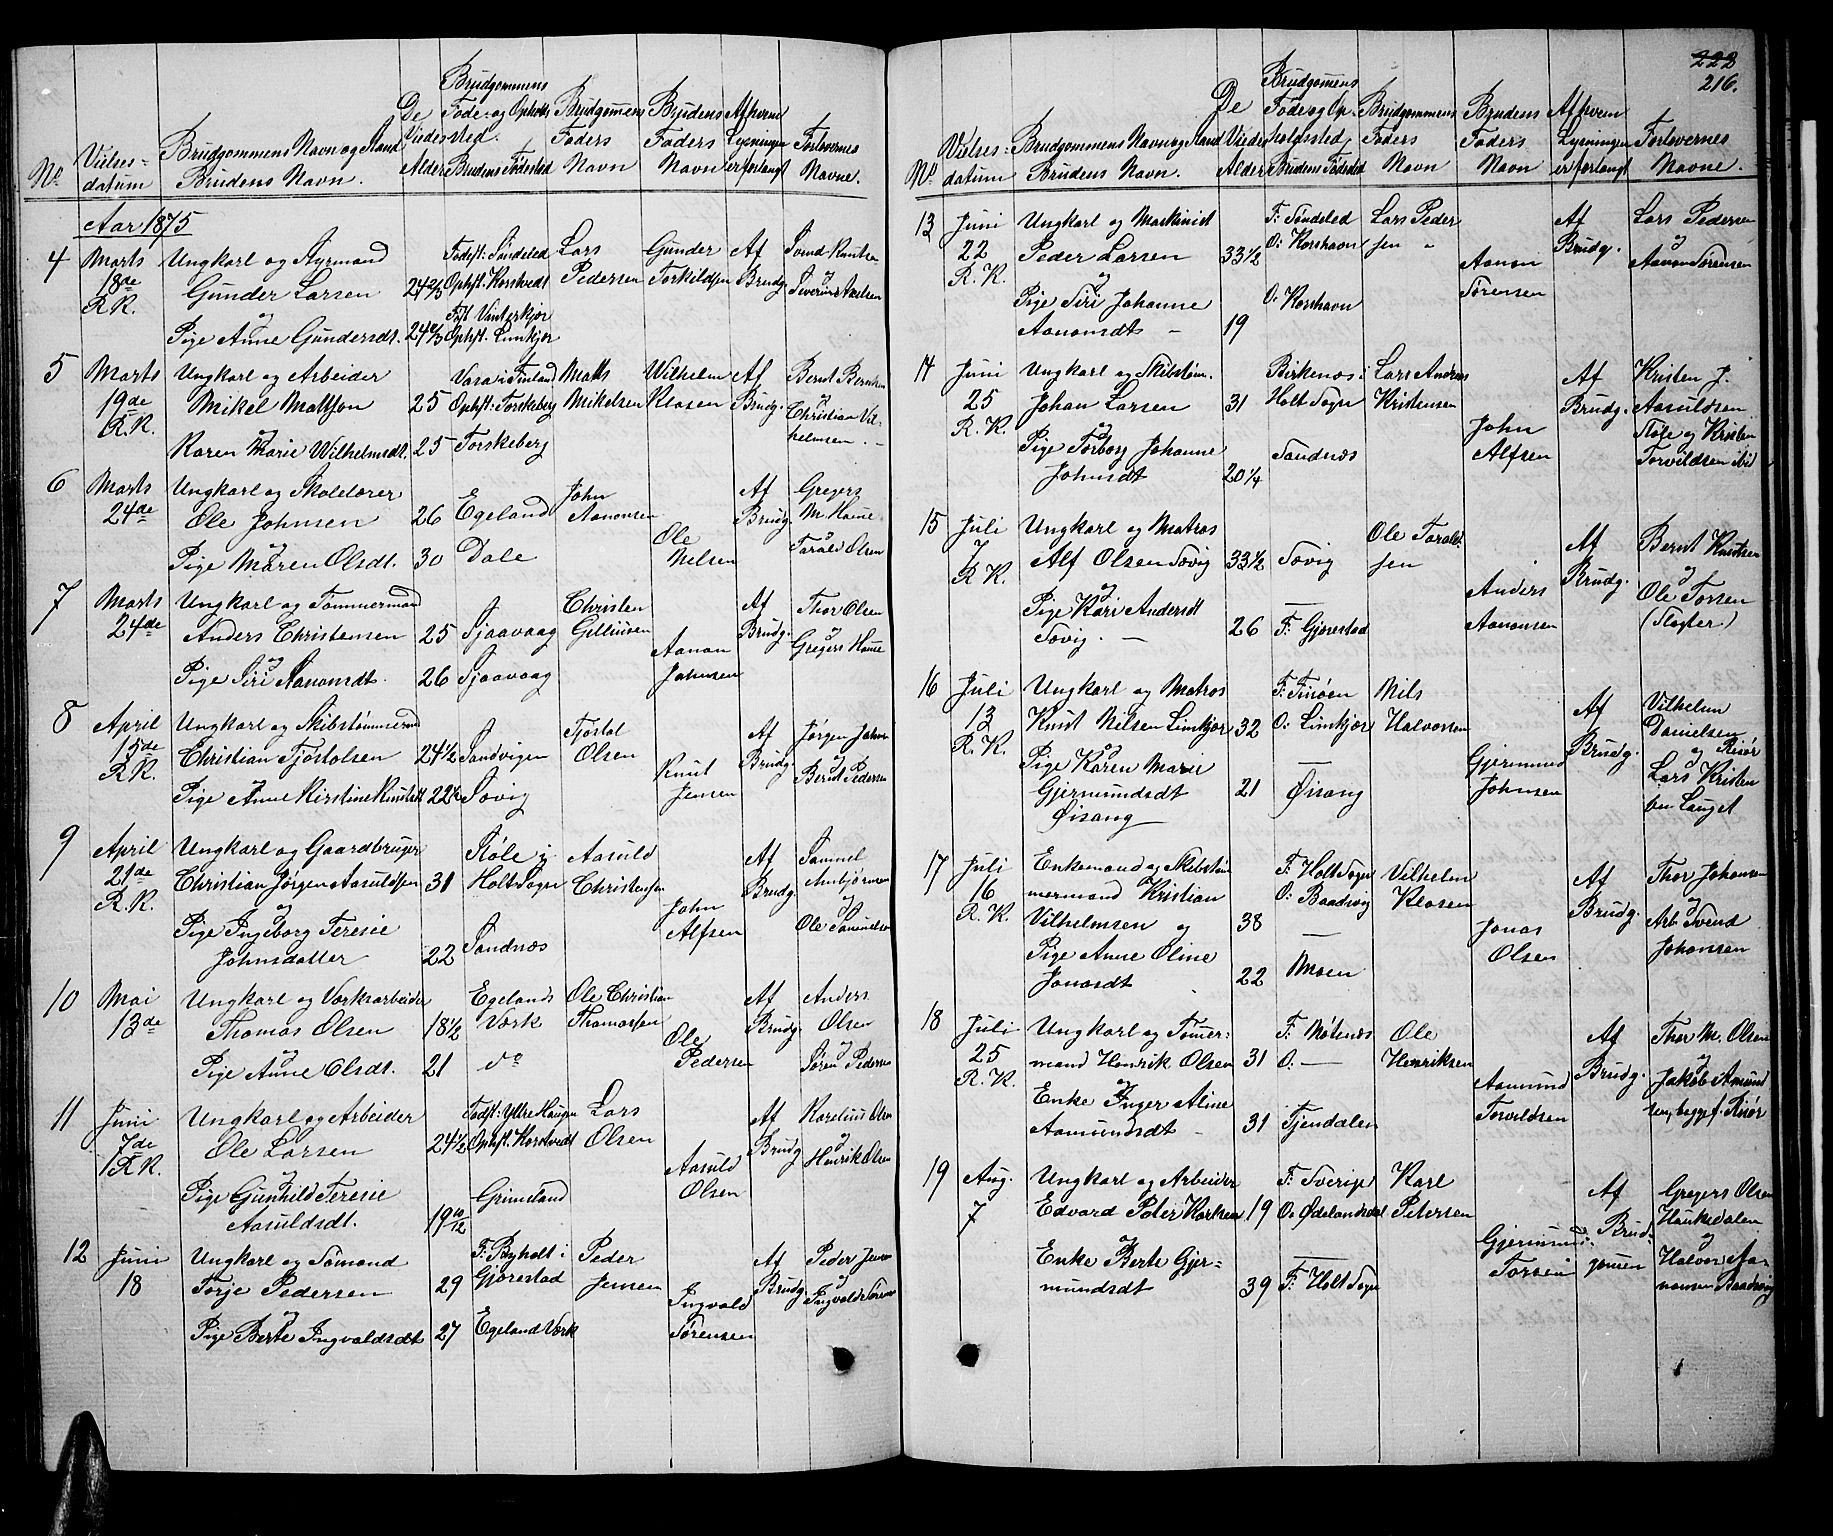 No. Vielses= datum
Brudgommens Navn og Stand
Brudens Navn.
De Viedes Alder
Brudgommens Føde- og Opholdssted.
Brudens Fødested
Brudgommens Faders Navn
Brudens Faders Navn
Af hvem Lysningen er forlangt
Forlovernes Navne.
Aar 1875
4 Marts Ungkarl og Styrmand Fødst: Søndeled Lars Gunder Af Svend Knutsen
18de Gunder Larsen 24 2/3 Ophst: Korstvedt Pedersen Torkildsen Brudg. Severin Axelsen
R.K. og Fst Vinterkjær
Pige Anne Gundersdt. Ophst. Limkjær
5 Marts Ungkarl og Arbeider Vasa i Finland Matts Wilhelm Af Bernt Berntsen
19de Mikel Mattson 25 Ophst: Torskeberg Mikelsen Klasen Brudg. og Christian Vil-
R.K. og helmsen.
Karen Marie Wilhelmsdt. 25 Torskeberg
6 Marts Ungkarl og Skolelærer John Af Gregers
24de Ole Johnsen 26 Egeland Aanonsen Brudg. M. Haue
og Ole Tarald Olsen
Pige Maren Olsdt. 30 Dale Nielsen
7 Marts Ungkarl og Tømmermand Christen Af Thor Olsen
24de Anders Christensen 25 Sjaavaag Gelliusen Brudg. og
og Aanon Gregers Haue
Pige Siri Aanonsdt. 26 Sjaavaag Johnsen
8 April Ungkarl og Skibstømmermand Tjøstol Af Jørgen Johnsen
15de Christian Tjøstolsen 24 1/2 Sandvigen Olsen Brudg. og
R.K. og Knut Bernt Pedersen
Pige Anne Kirstine Knutsdt 22 1/2 Søvig Jensen
9 April Ungkarl og Gaardbruger Støle i Aasuld Af Samuel
21de Christian Jørgen Aasuldsen 31 Holt Sogn Christensen Brudg. Anbjørnsen
R.K. og John og
Pige Ingeborg Teresie Alfsen Ole Samuelsen
Johnsdatter 22 Sandnæs
10 Mai Ungkarl og Værksarbeider Egelands Ole Christian Af Anders
13de Thomas Olsen 18 1/2 Værk Thomassen Brudg. Olsen
og Ole og
Pige Anne Olsdt. 21 do Pedersen Søren Pedersen
11 Juni Ungkarl og Arbeider Fødst: Yttre Haugen Lars Af Karelius Olsen
7de Ole Larsen 24 1/2 Ophst. Korstvedt Olsen Brudg. og
R.K. og Aasuld Henrik Olsen
Pige Gunhild Teresie Grimeland Olsen
Aasuldsdt. 19 10/12
12 Juni Ungkarl og Sømand F: Byholt i Peder Af Peder Jensen
18 Torje Pedersen 29 Gjerestad Jensen Brudg. og
og Ingvald Ingvald Sørensen
Pige Berte Ingvaldsdt 27 Egeland Værk Sørensen
228
216.
No. Vielses= datum
Brudgommens Navn og Stand
Brudens Navn.
De Viedes Alder
Brudgommens Føde og Opholdssted,
Brudens Fødested
Brudgommens Faders Navn
Brudens Faders Navn
Af hvem Lysningen er forlangt
Forlovernes Navne.
13 Juni Ungkarl og Maskinist F: Søndeled Lars Peder Af Lars Pedersen
22 Peder Larsen 33 1/2 O: Korshavn sen Brudg. og
R.K. og Aanon Aanon Sørensen
Pige Siri Johanne O: Korshavn Sørensen
Aanonsdt 19
14 Juni Ungkarl og Skibstøm. Birkenæs i Lars Andreas Af Kristen J.
25 Johan Larsen 31 Holt Sogn Kristensen Brudg. Aasuldsen
R.K. og John Støle og Kristen
Pige Torborg Johanne Sandnæs Alfsen Torvildsen ibid
Johnsdt 20 1/4
15 Juli Ungkarl og Matros Ole Tarald- Af Bernt Knutsen
7 Alf Olsen Søvig 33 1/2 Søvig sen Brudg. og
R.K. og Anders Ole Torsen
Pige Kari Andersdt Aanonsen (Slagter)
Søvig. 26 F: Gjerestad
16 Juli Ungkarl og Matros F: Finøen Nils Af Vilhelm
13 Knut Nilsen Limkjær 32 O: Limkjær Halvorsen Brudg. Danielsen
R.K. og Gjermund og Risør
Pige Karen Maren Johnsen Lars Kristen
Gjermundsdt 21 Øisang sen Lauget
Øisang
17 Juli Enkemand og Skibstøm F: Holt Sogn Vilhelm Af Thor Johansen
16 mermand Kristian O: Baadsvig Klasen Brudg. og
R.K. Vilhelmsen og 38 Jonas Arb. Svend
Pige Anne Oline Moen Olsen Johansen
Jonasdt 22
18 Juli Ungkarl og Tømer= F: Mølnæs Ole Af Thor M. Olsen
25 mand Henrik Olsen 31 O: — Henriksen Brudg. og
R.K. og Aamund Jakob Amund
Enke Inger Aline Torvildsen sen, begge f. Risør
Aamundsdt 31 Tjendalen
19 Aug. Ungkarl og Arbeider F: Sverige Karl Af Gregers Olsen
7 Edvard Peter Karlsen 19 O: Ødelandsdal Petersen Brud- Haukedalen
og Gjermund gomen og
Enke Berte Gjer= Torsen Halvor Aa-
mundsdt 39 F: Holt Sogn nonsen Baadsvig